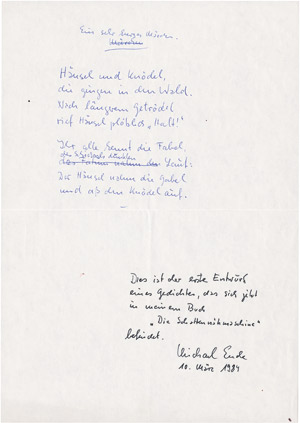 Ein sehr kurzes Märchen.
Märchen
Hänsel und Knödel,
die gingen in den Wald.
Nach längerem Getrödel
rief Hänsel plötzlich „Halt!“
Ihr alle kennt die Fabel,
des Schicksals dunklen
Lauf:
Der Hänsel nahm die Gabel
und aß den Knödel auf.
Dies ist der erste Entwurf
eines Gedichtes, das sich jetzt
in meinem Buch
„Die Schattennähmaschine“
befindet.
Michael Ende
10. März 1984